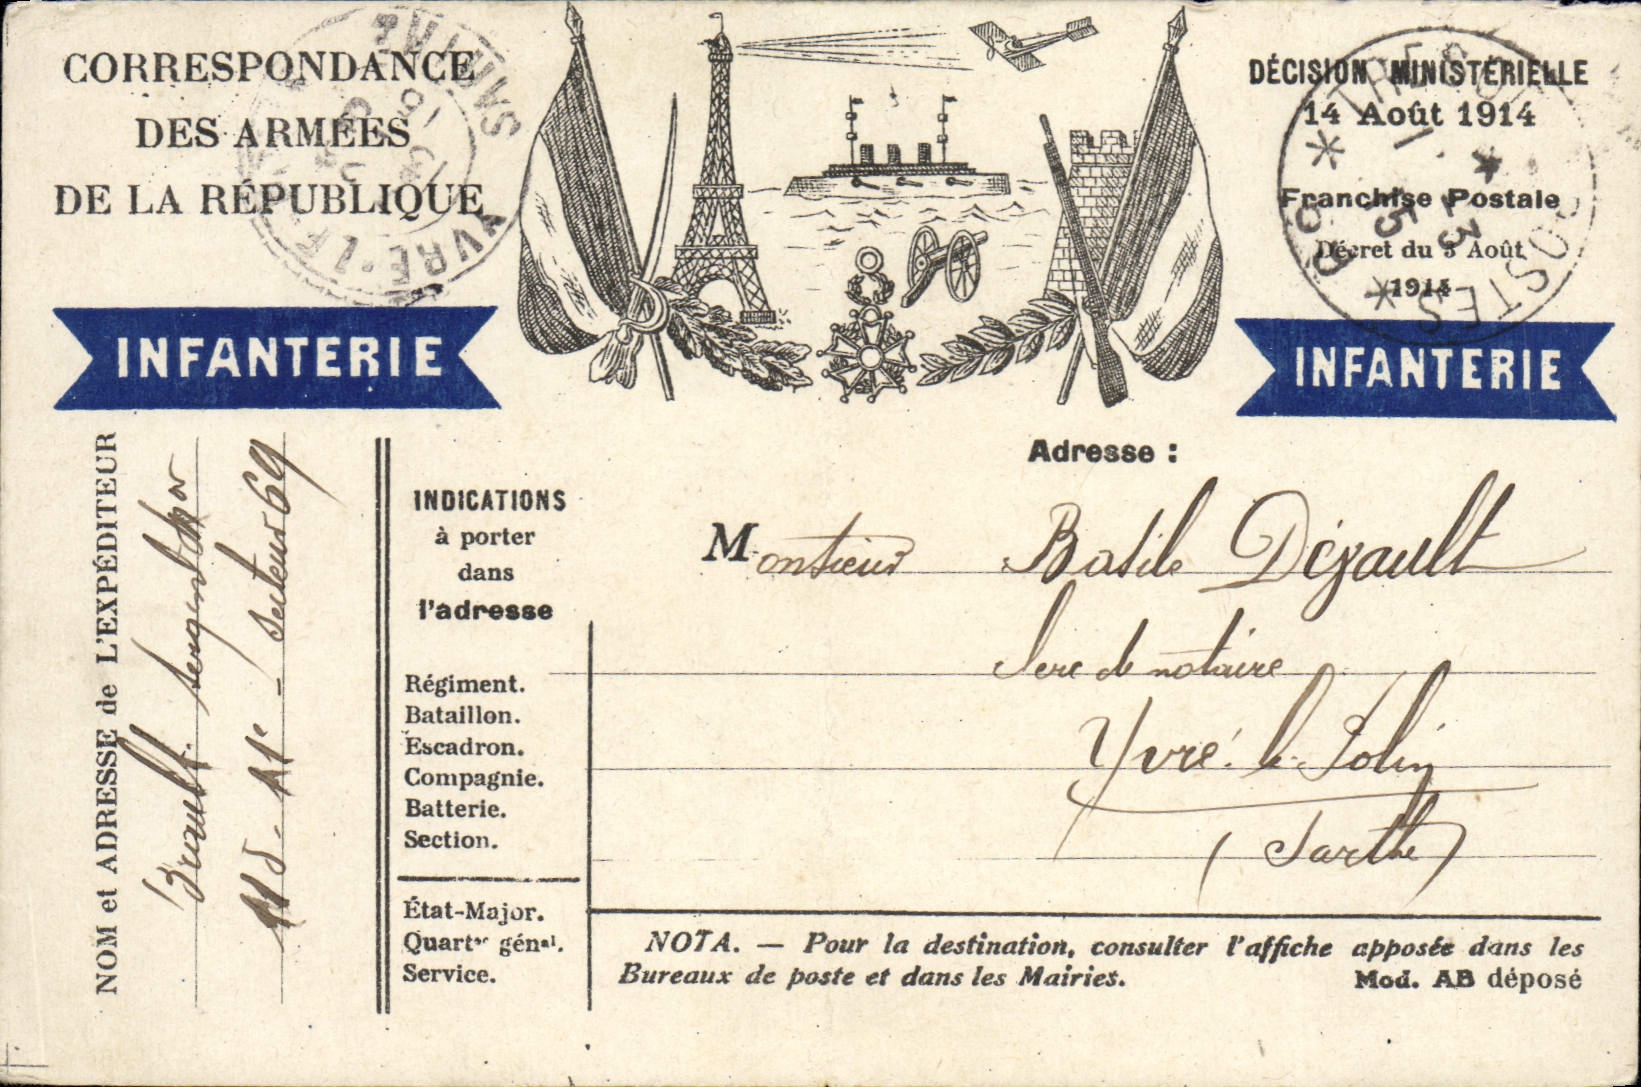 CORRESPONDANCE
DES ARMÉES
DE LA RÉPUBLIQUE
DÉCISION MINISTÉRIELLE
14 Août 1914
Franchise Postale
Décret du 3 Août
1914
INFANTERIE
INFANTERIE
NOM et ADRESSE de L'EXPÉDITEUR
sergent
secteur 69
INDICATIONS
à porter
dans
l'adresse
Régiment.
Bataillon.
Escadron.
Compagnie.
Batterie.
Section.
État-Major.
Quartier génal.
Service.
Adresse :
Monsieur Basile Dézault
clerc de notaire
Yvré-le-Pôlin
(Sarthe)
NOTA. — Pour la destination, consulter l'affiche apposée dans les
Bureaux de poste et dans les Mairies. Mod. AB déposé
TRESOR ET POSTES
YVRÉ-LE- SARTHE